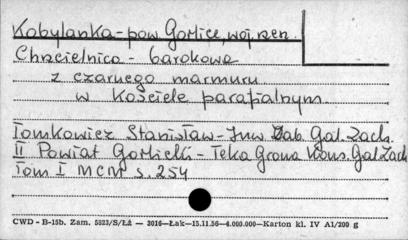 Kobylanka - pow Gorlice, woj. rzen.
Chrzcielnica - barokowa
z czarnego marmuru
w kościele parafialnym.
Tomkowicz Stanisław - Inw Zab. Gal. Zach.
II Powiat Gorlicki - Teka Grona Kons. Gal Zach
Tom I MCM s. 254
CWD - B-15b. Zam. 5923/S/Łż — 3016—Łak—15.11.56—4.000.000—Karton kl. IV A1/200 g